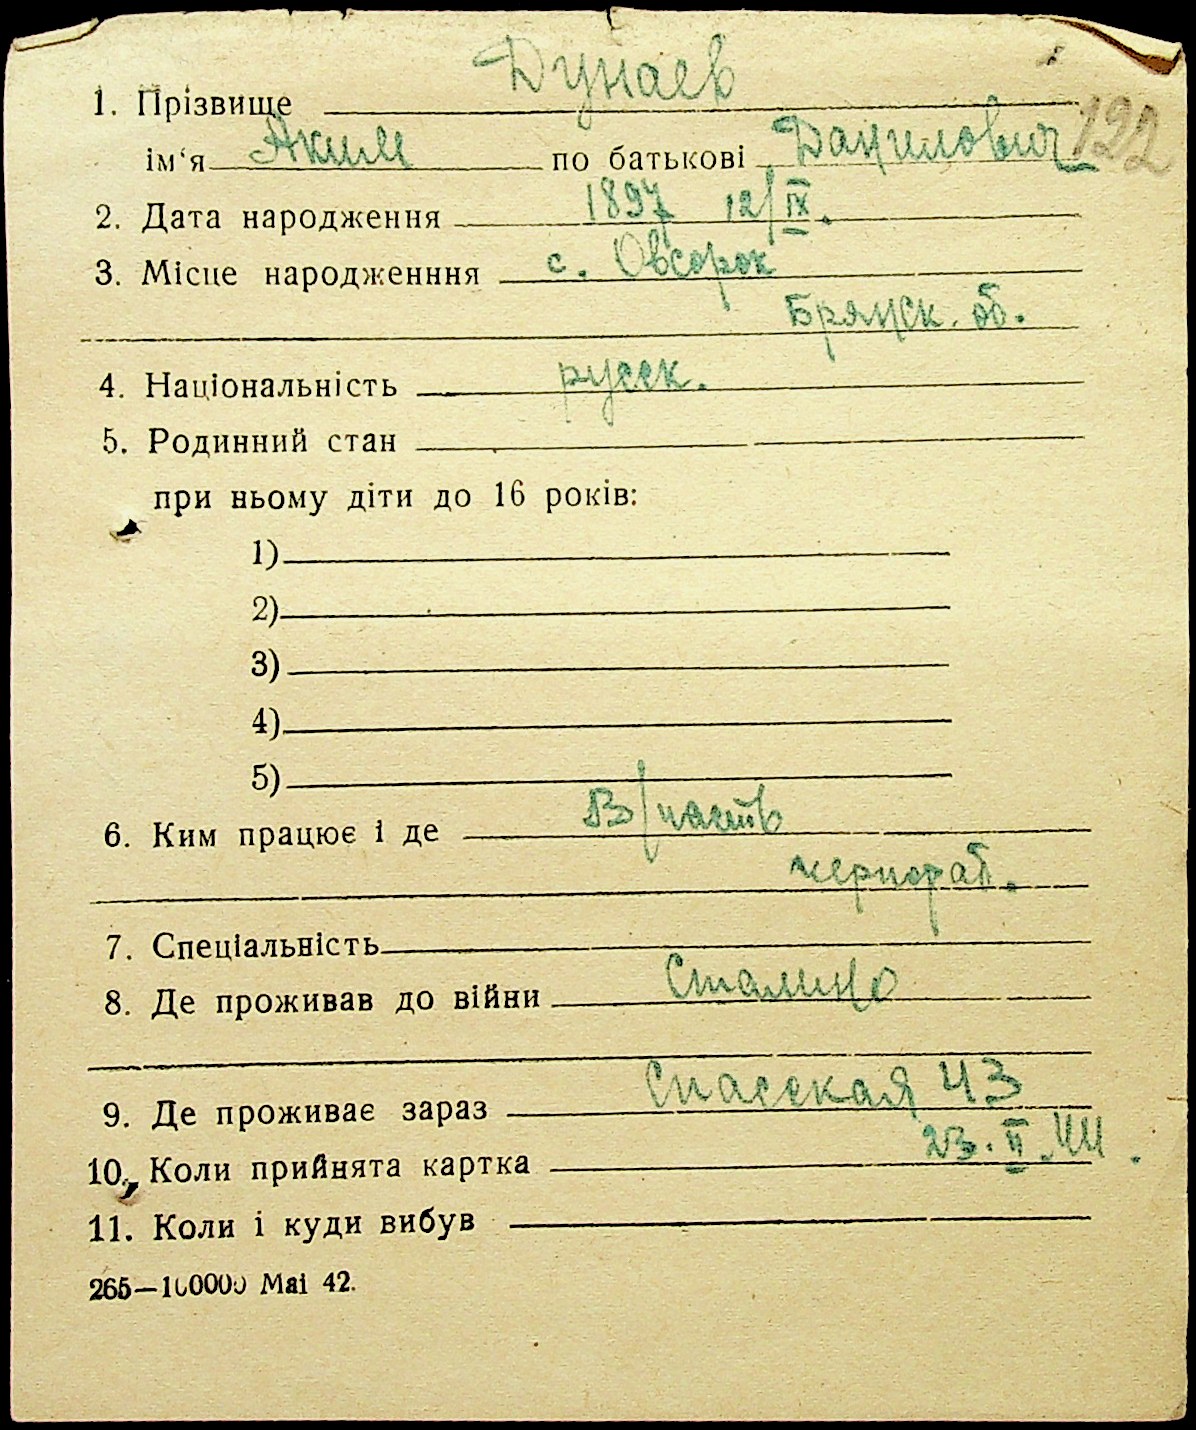 Дунаев
1. Прізвище
ім‘я Аким по батькові Данилович 122
2. Дата народження 1897 12/IX.
3. Місце народженння с. Овсорок
Брянск. об.
4. Національність русск.
5. Родинний стан
при ньому діти до 16 років:
1)
2)
3)
4)
5)
6. Ким працює і де В/часть
чернораб.
7. Спеціальність
8. Де проживав до війни Сталино
9. Де проживає зараз Спасская 43
10. Коли прийнята картка 23.II.
11. Коли і куди вибув
265—100000 Mai 42.